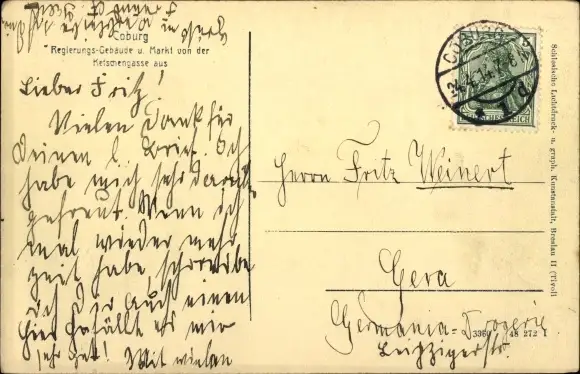 Coburg
Regierungs-Gebäude u. Markt von der
Ketschengasse aus
Lieber Fritz!
Vielen Dank für
Deinen l. Brief. Ich
habe mich sehr darüber
gefreut. Wenn ich
mal wieder mehr
Zeit habe, schreibe
ich Dir auch einen
Hier gefällt es mir
sehr gut! Mit vielen
COBURG
Herrn Fritz Weinert
Gera
Germania-Drogerie
Leipzigerstr.
3360 48 272 1
Schlesische Lichtdruck- u. graph. Kunstanstalt, Breslau II (Tivoli